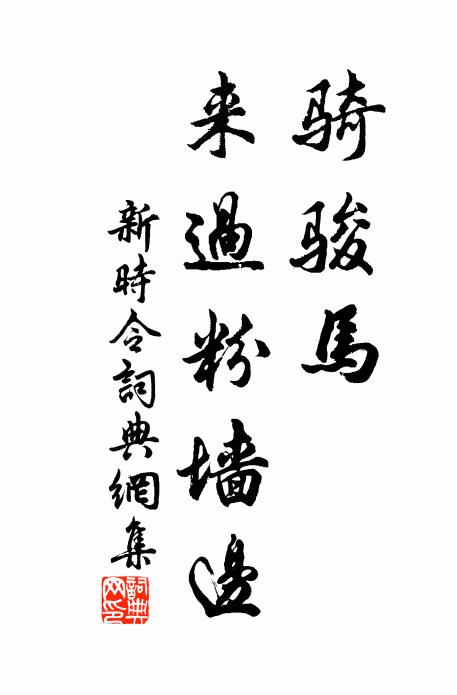 骑骏馬
来過粉墙邊
新時令詞典網集
詞典
网印